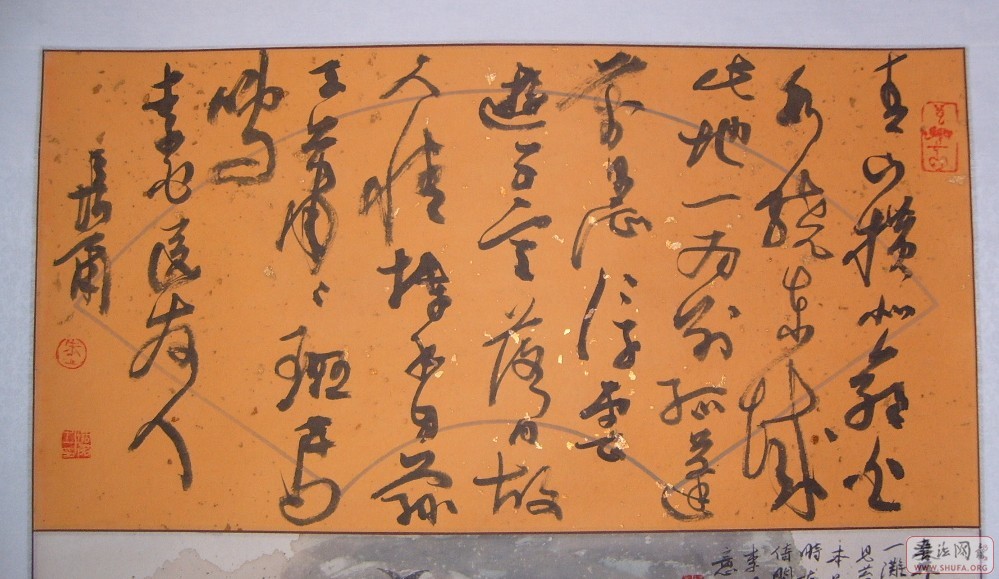 青山横北郭白
水绕东城
此地一为别孤蓬
万里征浮云
游子意落日故
人情挥手自兹
去萧〻班马
鸣
李白送友人
一滩
本
時
倚
意
書法网
WWW.SHUFA.ORG